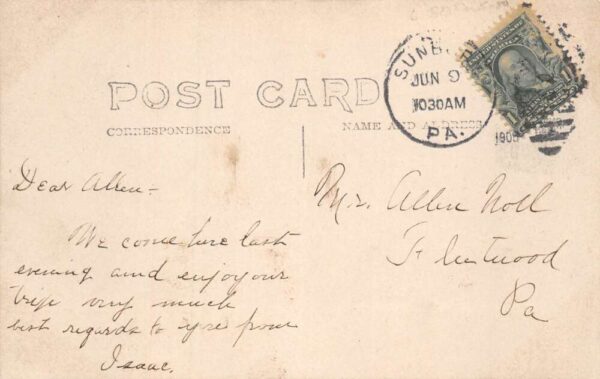 POST CARD
CORRESPONDENCE
NAME AND ADDRESS
SUNB
JUN 9
1030AM
PA.
190
Dear Allen -
We come here last
evening and enjoy our
trip very much
best regards to you from
Isaac.
Mr. Allen Noll
Fleetwood
Pa